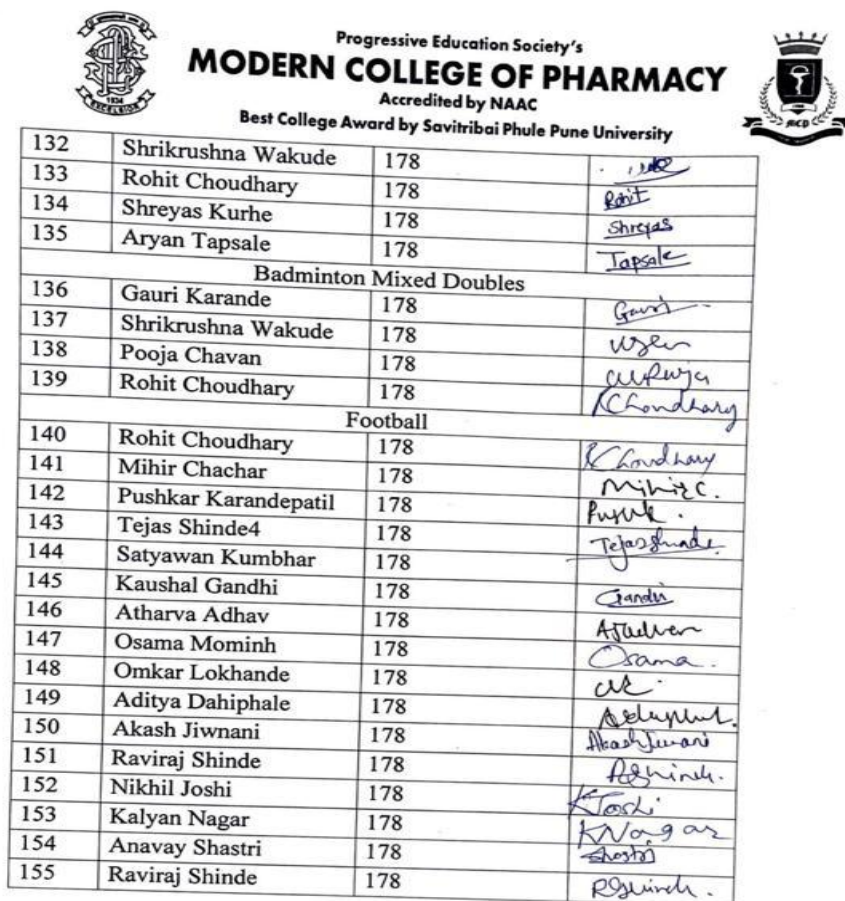 Progressive Education Society's
MODERN COLLEGE OF PHARMACY
Accredited by NAAC
Best College Award by Savitribai Phule Pune University
1934
EXCELSIOR
MCP
132 Shrikrushna Wakude 178
133 Rohit Choudhary 178 Rohit
134 Shreyas Kurhe 178 Shreyas
135 Aryan Tapsale 178 Tapsale
Badminton Mixed Doubles
136 Gauri Karande 178 Gauri
137 Shrikrushna Wakude 178
138 Pooja Chavan 178
139 Rohit Choudhary 178 RChoudhary
Football
140 Rohit Choudhary 178 RChoudhary
141 Mihir Chachar 178 Mihir C.
142 Pushkar Karandepatil 178
143 Tejas Shinde4 178 Tejas Shinde
144 Satyawan Kumbhar 178
145 Kaushal Gandhi 178 Gandhi
146 Atharva Adhav 178
147 Osama Mominh 178 Osama.
148 Omkar Lokhande 178
149 Aditya Dahiphale 178
150 Akash Jiwnani 178 Akash Jiwnani
151 Raviraj Shinde 178
152 Nikhil Joshi 178 Joshi
153 Kalyan Nagar 178 KNagar
154 Anavay Shastri 178 Shastri
155 Raviraj Shinde 178